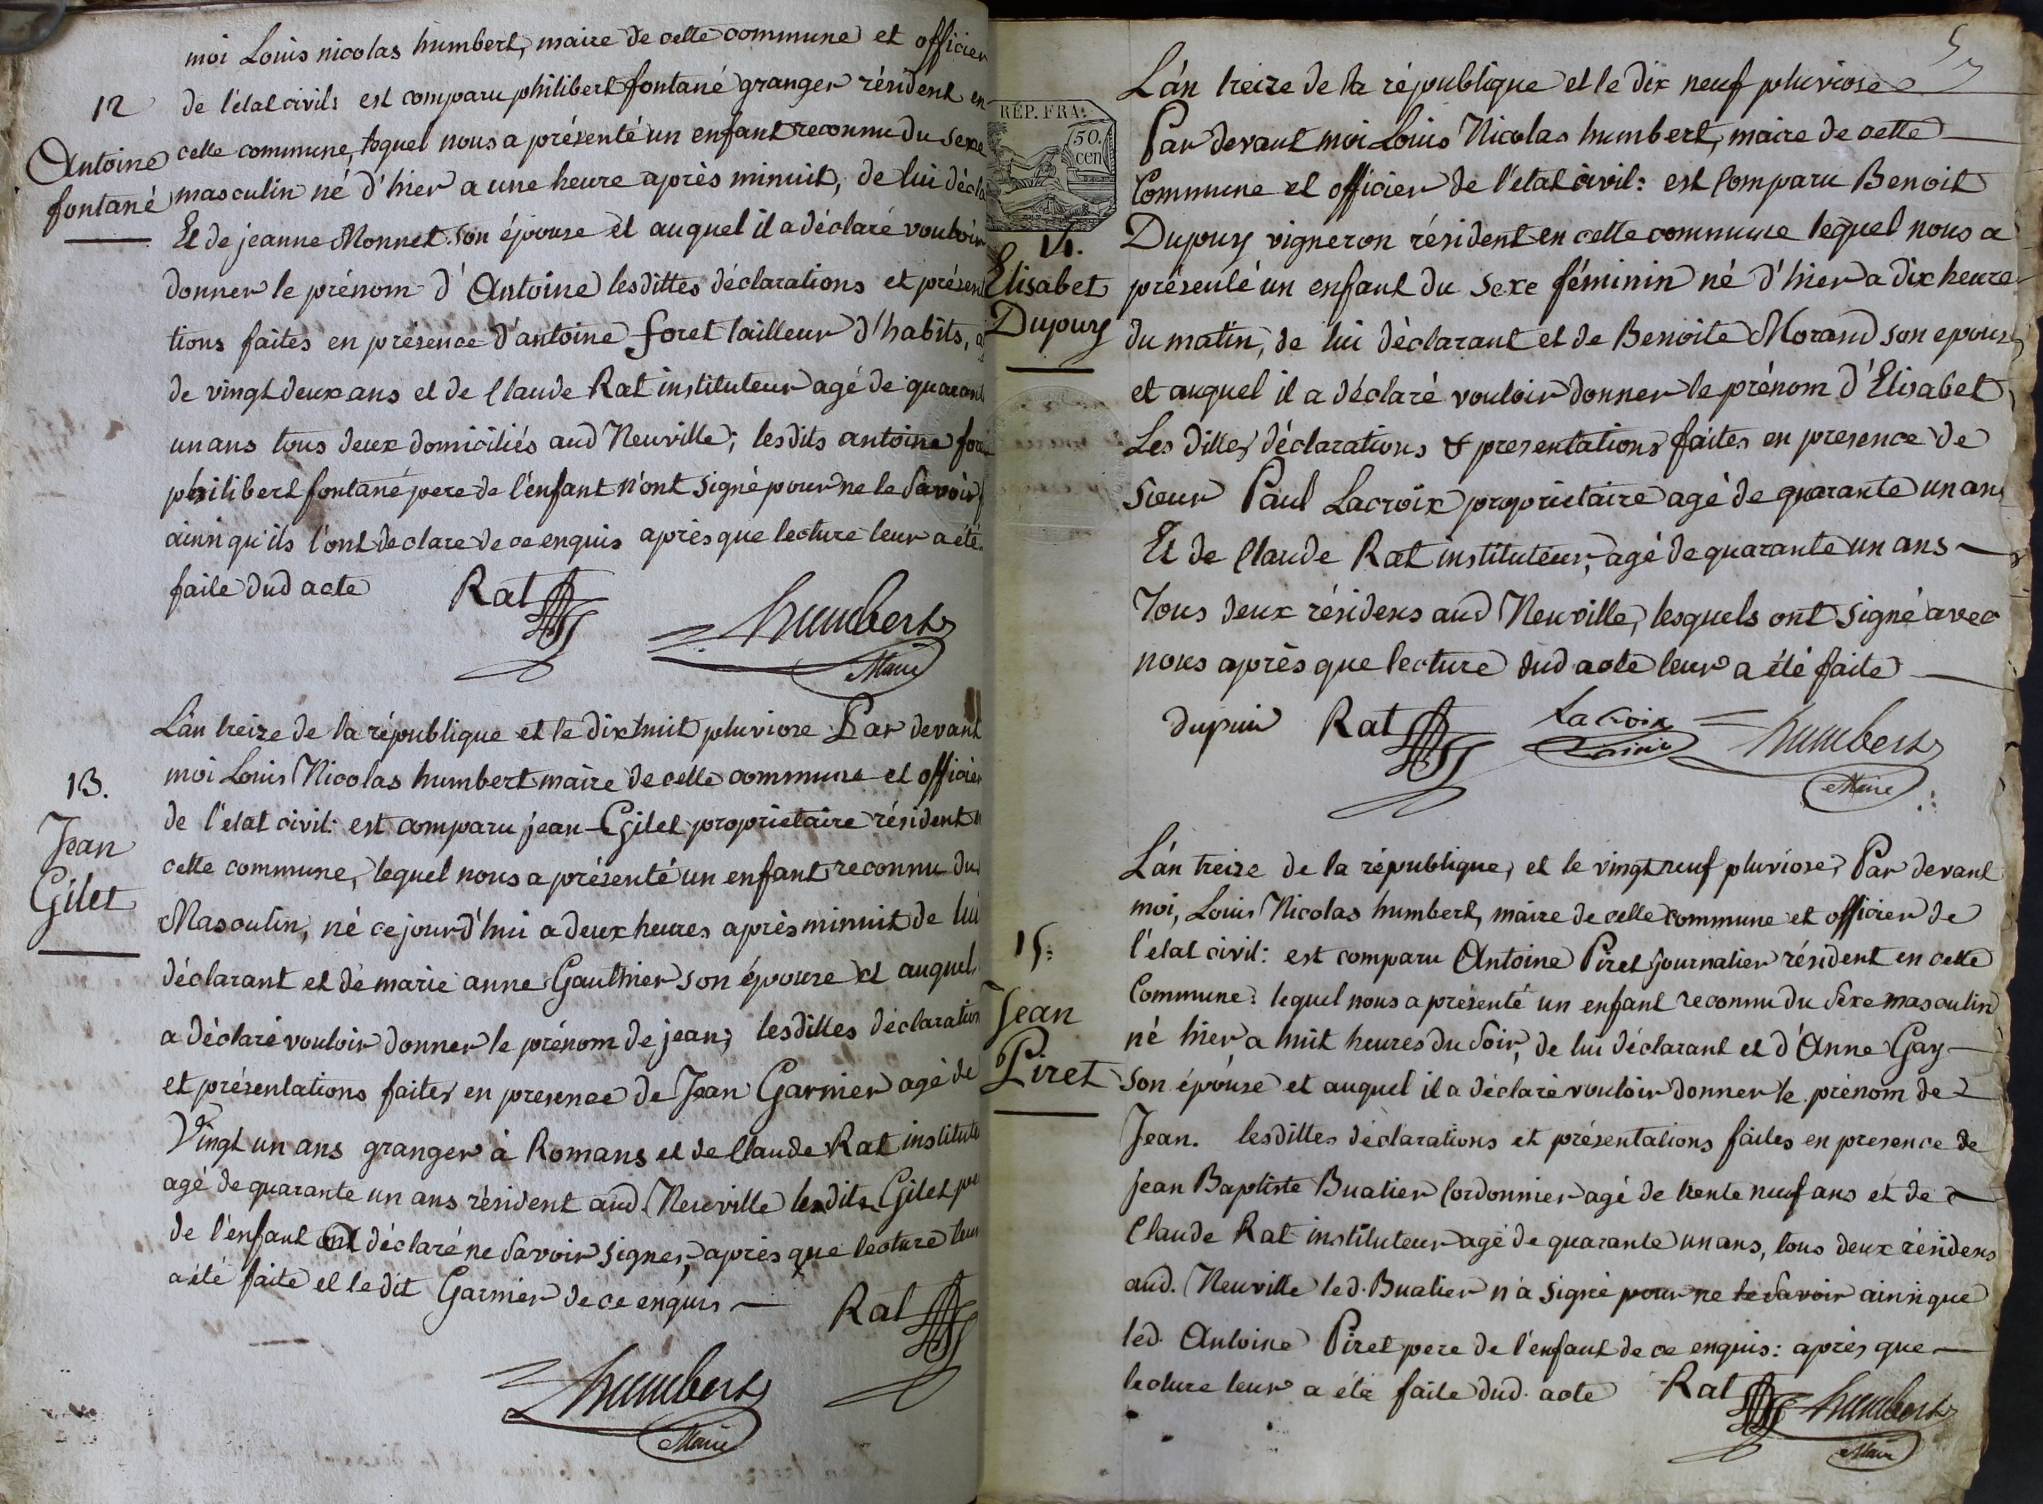 moi Louis nicolas humbert, maire de cette commune et officier
12
de l'état civil: est comparu philibert fontané granger résident en
Antoine
fontané
cette commune, lequel nous a présenté un enfant reconnu du Sexe
masculin né d'hier a une heure après minuit, de lui décla
Et de jeanne Monnet son épouse et auquel il a déclaré vouloir
donner le prénom d'Antoine lesdittes déclarations et présen
tions faites en présence d'antoine foret tailleur d'habits, a
de vingt deux ans et de Claude Rat instituteur agé de quarant
un ans tous deux domiciliés aud Neuville; lesdits antoine for
philibert fontané pere de l'enfant n'ont signé pour ne le Savoir
ainsi qu'ils l'ont declaré de ce enquis après que lecture leur a été
faite dud acte
Rat
humbert
Maire
L'an treize de la république et le dix huit pluviose Par devant
13.
Jean
Gilet
moi Louis Nicolas humbert maire de cette commune et officier
de l'état civil: est comparu jean Gilet propriétaire résident
cette commune, lequel nous a présenté un enfant reconnu du
Masculin, né ce jourd'hui a deux heures après minuit de lui
déclarant et de marie anne Gauthier son épouse et auquel
a déclaré vouloir donner le prénom de jean, lesdittes déclaration
et présentations faites en presence de Jean Garnier agé de
Vingt un ans granger à Romans et de Claude Rat institute
agé de quarante un ans résident aud. Neuville lesdits Gilet pe
de l'enfant ont déclaré ne Savoir signer, après que lecture leur
a été faite et le dit Garnier de ce enquis
Rat
humbert
Maire
5
L'an treize de la république et le dix neuf pluviose
RÉP. FRA.
50.
cen
14.
Elisabet
Dupuy
Par devant moi Louis Nicolas humbert, maire de cette
Commune et officier de l'état civil: est Comparu Benoit
Dupuy vigneron résident en cette commune lequel nous a
présenté un enfant du Sexe féminin né d'hier a dix heure
du matin, de lui déclarant et de Benoite Morand son epouse
et auquel il a déclaré vouloir donner le prénom d'Elisabet
Les dittes déclarations & presentations faites en presence de
Sieur Paul Lacroix proprietaire agé de quarante un ans
Et de Claude Rat instituteur, agé de quarante un ans
Tous deux résidens aud Neuville, lesquels ont Signé avec
nous après que lecture dud acte leur a été faite
dupui Rat Lacroix humbert
Maire
L'an treize de la république, et le vingt neuf pluviose, Par devant
15.
Jean
Piret
moi, Louis Nicolas humbert, maire de cette commune et officier de
l'état civil: est comparu Antoine Piret journalier résident en cette
Commune: lequel nous a présenté un enfant reconnu du Sexe masculin
né hier a huit heures du Soir, de lui déclarant et d'Anne Gay
Son épouse et auquel il a déclaré vouloir donner le prénom de
Jean. lesdittes déclarations et présentations faites en presence de
jean Baptiste Buatier Cordonnier agé de trente neuf ans et de
Claude Rat instituteur agé de quarante un ans, tous deux résidens
aud. Neuville led. Buatier n'a Signé pour ne le Savoir ainsi que
led. Antoine Piret pere de l'enfant de ce enquis: après que
lecture leur a été faite dud. acte Rat humbert
Maire